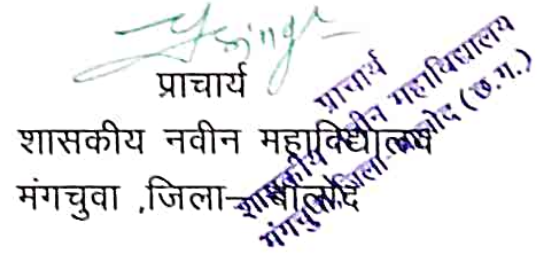 प्राचार्य
शासकीय नवीन महाविद्यालय
मंगचुवा ,जिला–बालोद
प्राचार्य
शासकीय नवीन महाविद्यालय
मंगचुवा जिला-बालोद (छ.ग.)